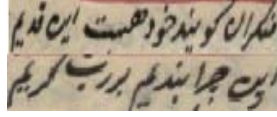 منکران گویند خود هست این قدیم
این چرا بندیم بر رب کریم